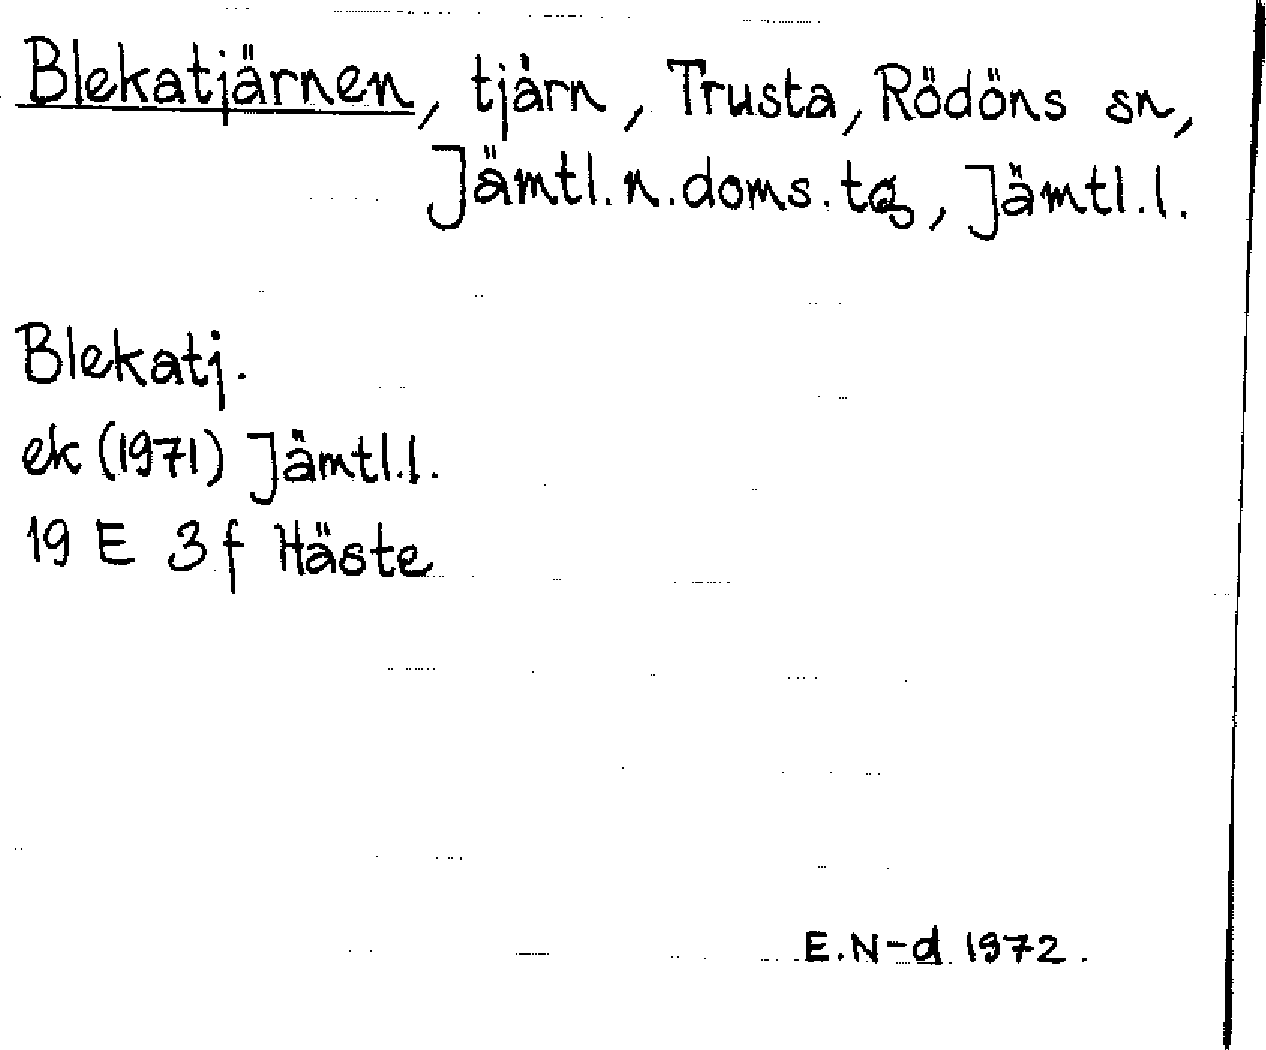 Blekatjärnen, tjärn, Trusta, Rödöns sn,
Jämtl.n.doms.tg, Jämtl.l.
Blekatj.
ek (1971) Jämtl.l.
19 E 3f Häste
E.N-d 1972.